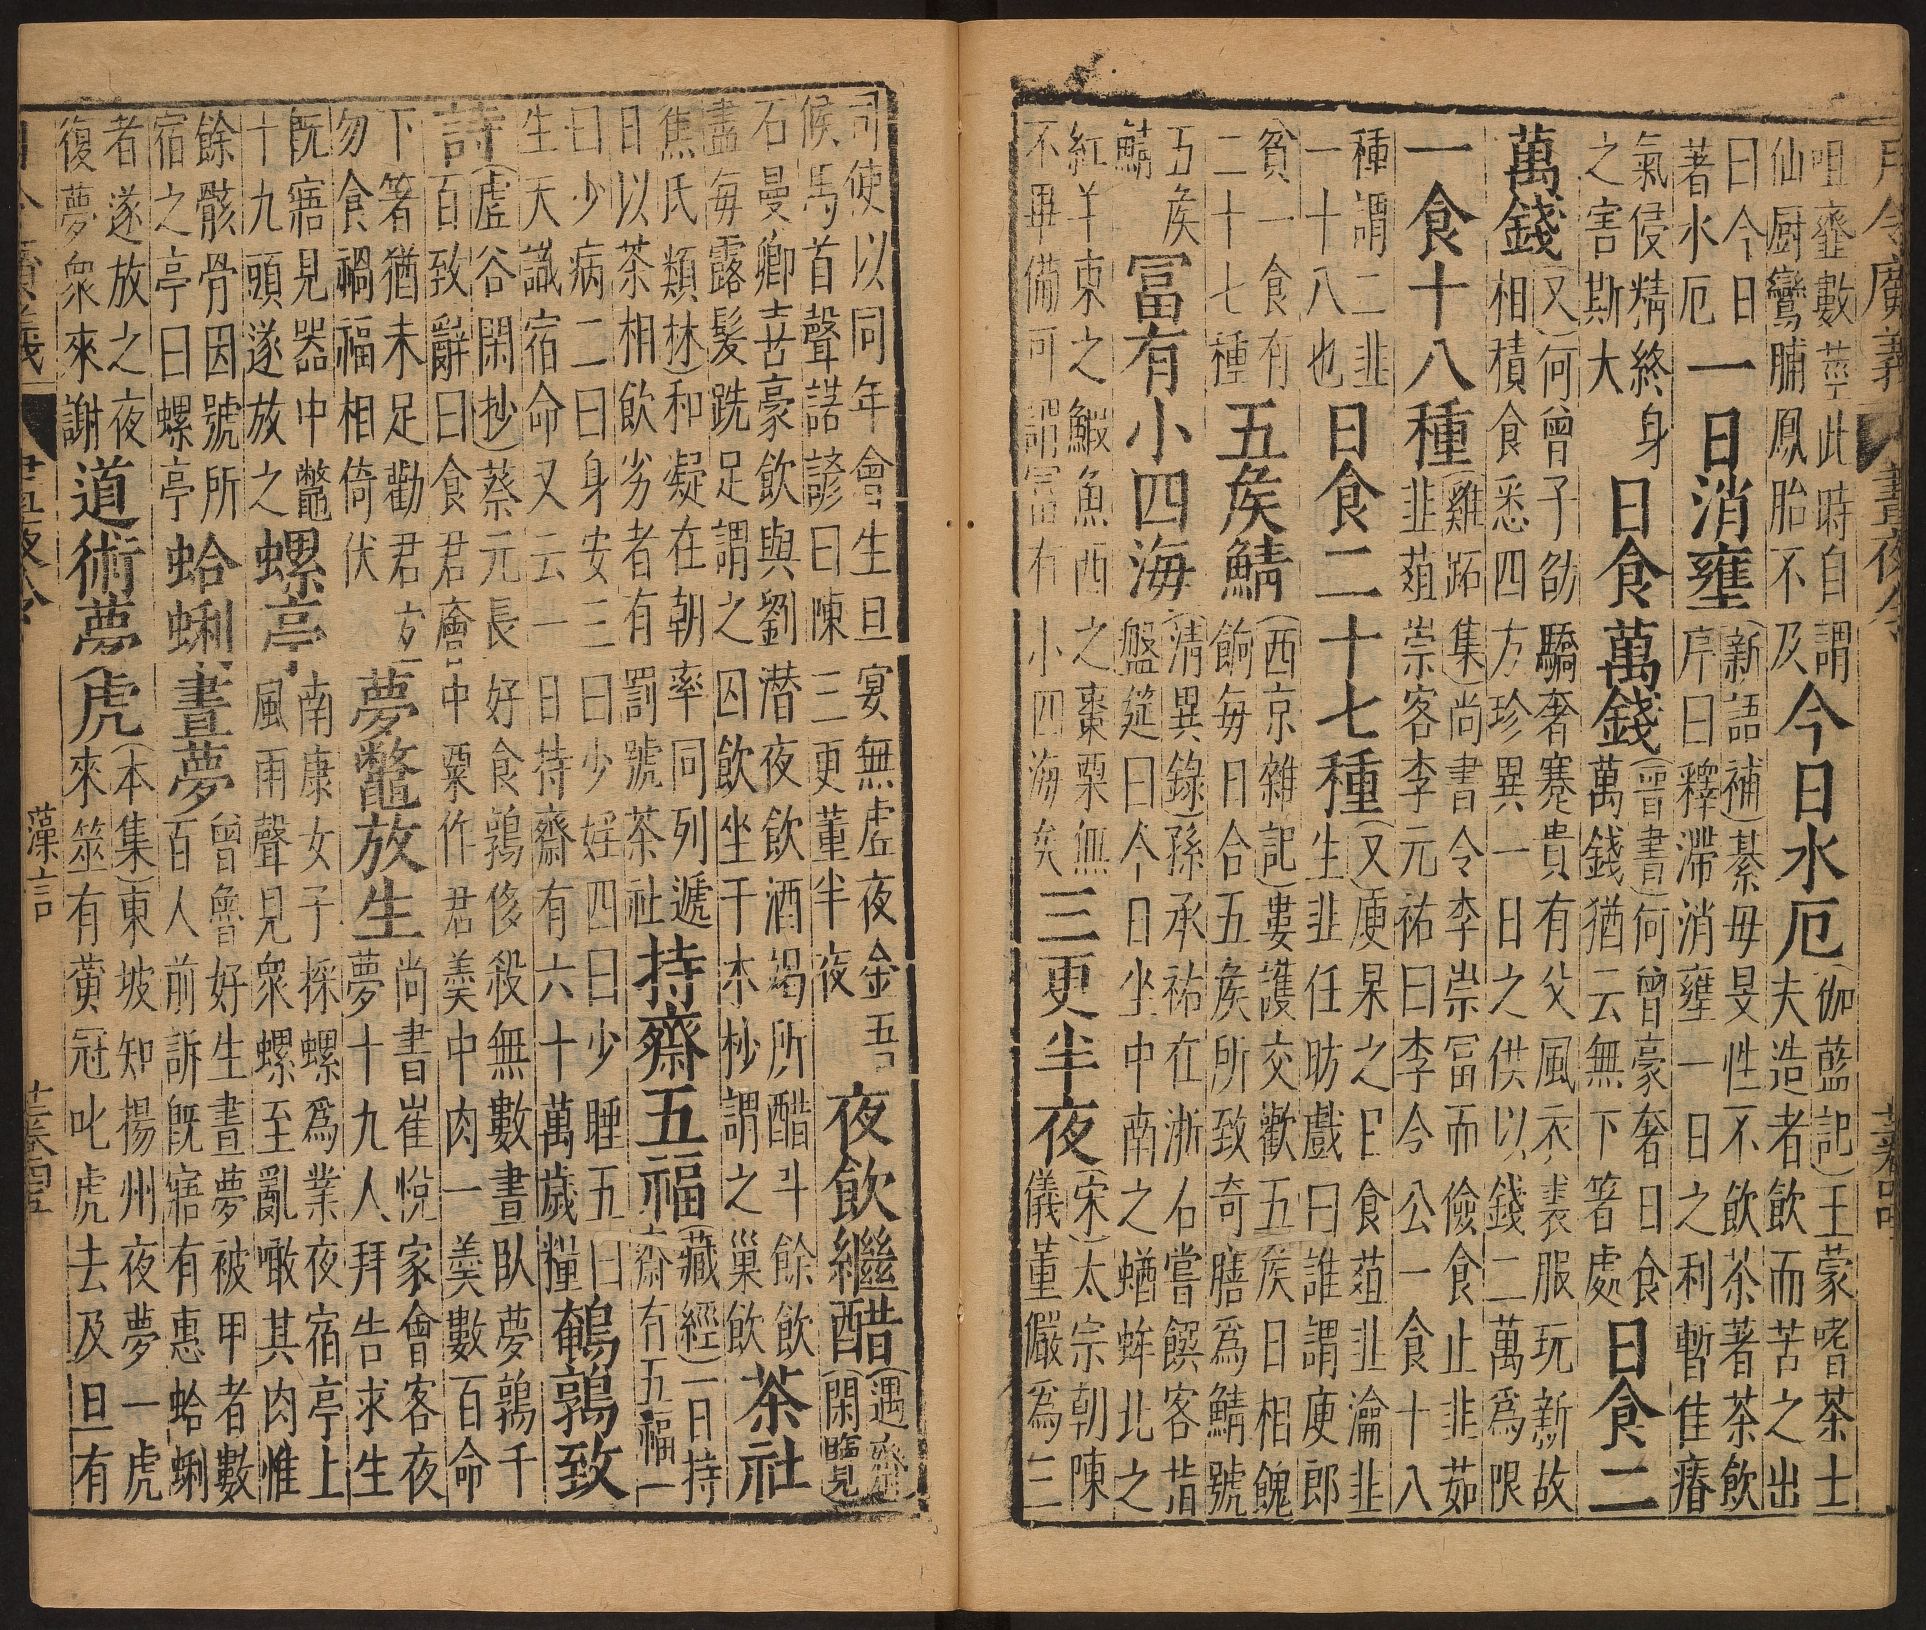 月令廣義 晝夜令
咀虀數莖此時自謂
仙厨鸞脯鳳胎不及
今日水厄
(伽藍記)王蒙嗜茶士
夫造者飲而苦之出
曰今日
著水厄
一日消壅
(新語補)綦毋旻性不飲茶著茶飲
序曰釋滯消壅一日之利暫佳瘠
氣侵精終身
之害斯大
日食萬錢
(晉書)何曾豪奢日食
萬錢猶云無下箸處
日食二
萬錢
(又)何曾子劭驕奢蹇貴有父風衣裘服玩新故
相積食悉四方珍異一日之供以錢二萬爲限
一食十八種
(雞跖集)尚書令李崇冨而儉食止韭茹
韭葅崇客李元祐曰李令公一食十八
種謂二韭
一十八也
日食二十七種
(又)庾杲之日食葅韭瀹韭
生韭任昉戲曰誰謂庾郎
貧一食有
二十七種
五矦鯖
(西京雜記)婁護交歡五矦日相餽
餉每日合五矦所致奇膳爲鯖號
五矦
鯖
冨有小四海
(清異錄)孫承祐在浙右嘗饌客指
盤筵曰今日坐中南之蝤蛑北之
紅羊東之鰕魚西之棗栗無
不畢備可謂冨有小四海矣
三更半夜
(宋)太宗朝陳
儀董儼爲三
司使以同年會生旦宴無虛夜金吾
候馬首聲諾諺曰陳三更董半夜
夜飲繼醋
(遇齋
閑覽)
石曼卿喜豪飲與劉潜夜飲酒竭所醋斗餘飲
盡每露髮跣足謂之囚飲坐干木杪謂之巢飲
茶社
焦氏類林)和凝在朝率同列遞
日以茶相飲劣者有罰號茶社
持齋五福
(藏經)一日持
齋有五福一
曰少病二曰身安三曰少婬四曰少睡五曰
生天識宿命又云一日持齋有六十萬歲糧
鵪鶉致
詩
(虛谷閑抄)蔡元長好食鶉侈殺無數晝臥夢鶉千
百致辭曰食君廩中粟作君羮中肉一羮數百命
下箸猶未足勸君
勿食禍福相倚伏
夢鼈放生
尚書崔悅家會客夜
夢十九人拜告求生
旣寤見器中鼈
十九頭遂放之
螺亭
南康女子採螺爲業夜宿亭上
風雨聲見衆螺至亂噉其肉惟
餘骸骨因號所
宿之亭曰螺亭
蛤蜊晝夢
曾魯好生晝夢被甲者數
百人前訴旣寤有惠蛤蜊
者遂放之夜
復夢衆來謝
道術夢虎
(本集)東坡知揚州夜夢一虎
來筮有黃冠叱虎去及旦有